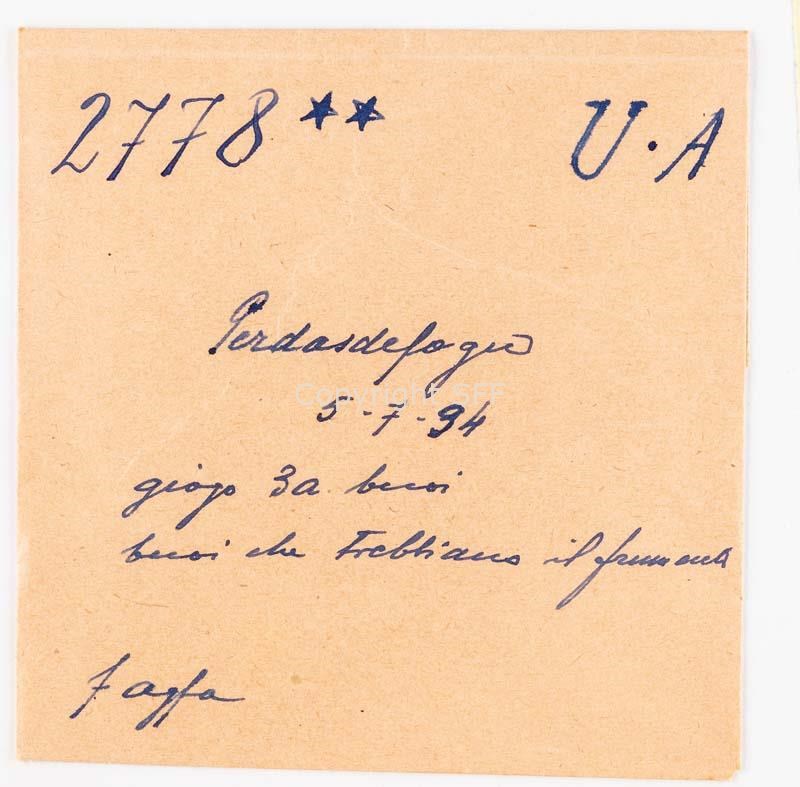 2778 ** U.A
Perdasdefogu
Copyright SFF
5-7-94
giogo 3a buoi
buoi che trebbiano il frumento
f agfa